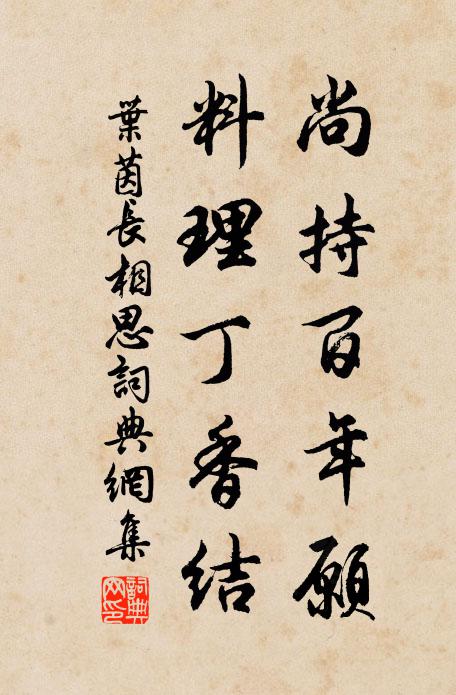 尚持百年願
料理丁香結
葉茵長相思詞典網集
詞典網印